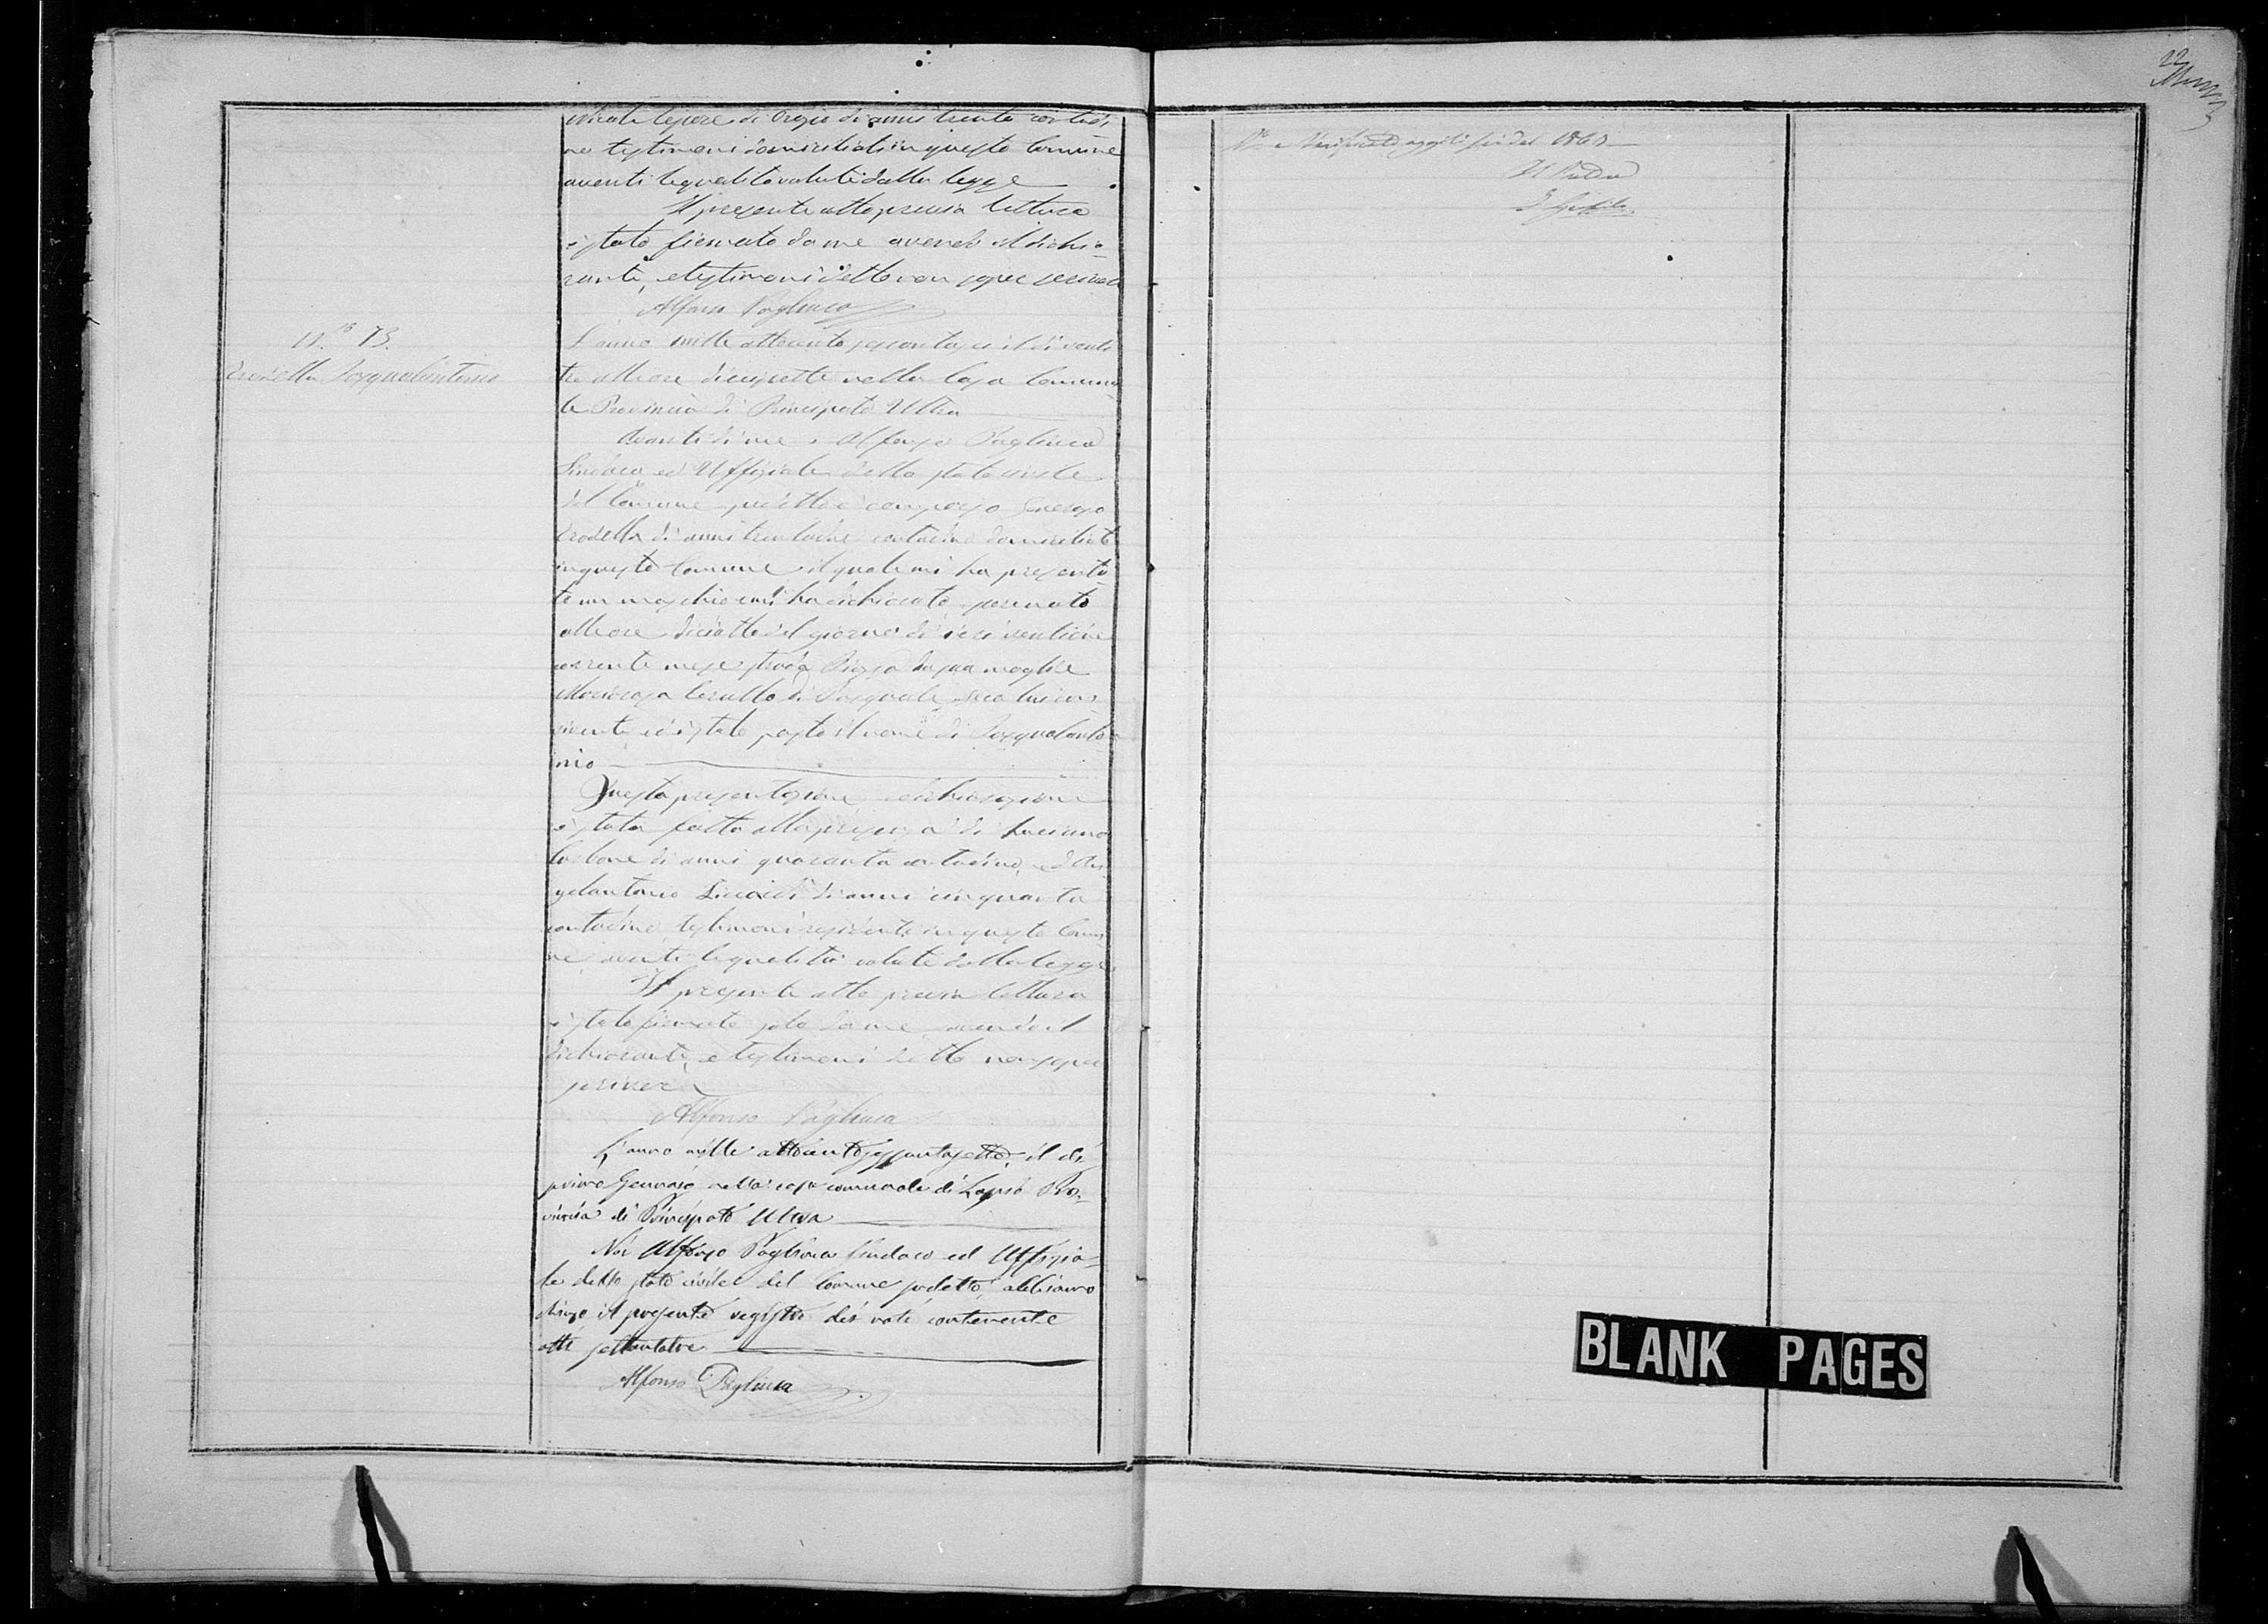 di anni trenta contadi
no testimoni domiciliati in questo Comune
aventi le qualità volute dalla legge
Il presente atto previa lettura
è stato firmato da me avendo il dichia
rante, e testimoni detto non saper scrivere
Alfonso Pagliuca
N.ro 73.
Pasqualantonio
L'anno mille ottocento sessantasei il di venti
tre alle ore diecisette nella Casa Comuna
le Provincia di Principato Ultra
Avanti di me Alfonso Pagliuca
Sindaco ed Uffiziale dello stato civile
del Comune suddetto è comparso Generoso
di anni contadino domiciliato
in questo Comune il quale mi ha presenta
to un maschio e mi ha dichiarato esser nato
alle ore del giorno di ieri ventidue
corrente mese strada da sua moglie
di Pasquale seco lui con
vivente, ed è stato posto il nome di Pasqualanto
nio
Questa presentazione e dichiarazione
è stata fatta alla presenza di Luciano
Carbone di anni quaranta contadino, ed An
gelantonio di anni cinquanta
contadino, testimoni residenti in questo Comu
ne aventi le qualità volute dalla legge
Il presente atto previa lettura
è stato firmato solo da me avendo il
dichiarante, e testimoni detto non saper
scrivere
Alfonso Pagliuca
L'anno mille ottocento sessantasette, il dì
primo Gennaio nella casa comunale di Lapio Pro
vincia di Principato Ultra
Noi Alfonso Pagliuca Sindaco ed Uffizia
le dello stato civile del Comune sudetto, abbiamo
chiuso il presente registro dei nati contenente
atti settantatre
Alfonso Pagliuca
22
del 1868
BLANK PAGES